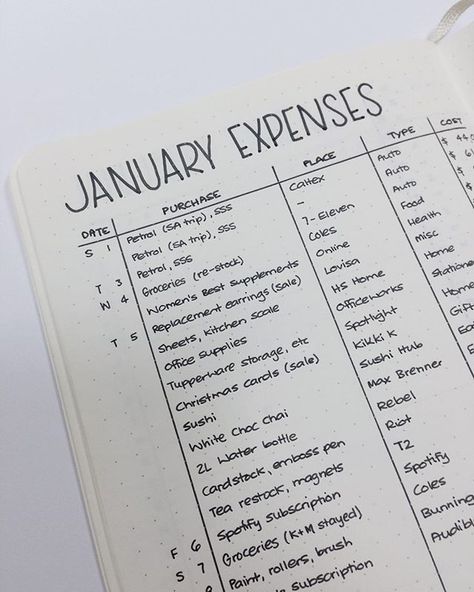 JANUARY EXPENSES
DATE PURCHASE PLACE TYPE COST
S 1 Petrol (SA trip), SSS Caltex Auto $ 44.0
Petrol (SA trip), SSS – Auto $ 6
T 3 Petrol, SSS 7-Eleven Auto $
W 4 Groceries (re-stock) Coles Food $
Women's Best supplements Online Health
T 5 Replacement earrings (sale) Lovisa misc
Sheets, kitchen scale HS Home Home
Office supplies Officeworks Statione
Tupperware storage, etc Spotlight Home
Christmas cards (sale) Kikki K Gift
Sushi Sushi Hub
White Choc Chai Max Brenner
2L Water bottle Rebel
Cardstock, emboss pen Riot
Tea restock, magnets T2
F 6 Spotify subscription Spotify
S 7 Groceries (K+M stayed) Coles
8 Paint, rollers, brush Bunning
subscription Audible